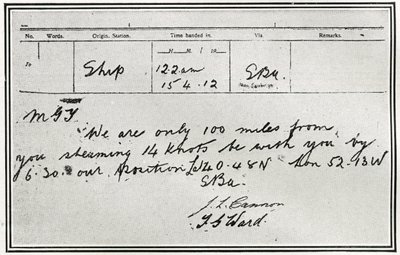 No. Words. Origin. Station. Time handed in. Via Remarks.
H. M. / 19
Ship 122am SBu.
15 4 . 12
MGY
We are only 100 miles from
you steaming 14 knots be with you by
6.30. our position Lat 40.48N Lon 52.13W
SBu.
J. L. Cannon